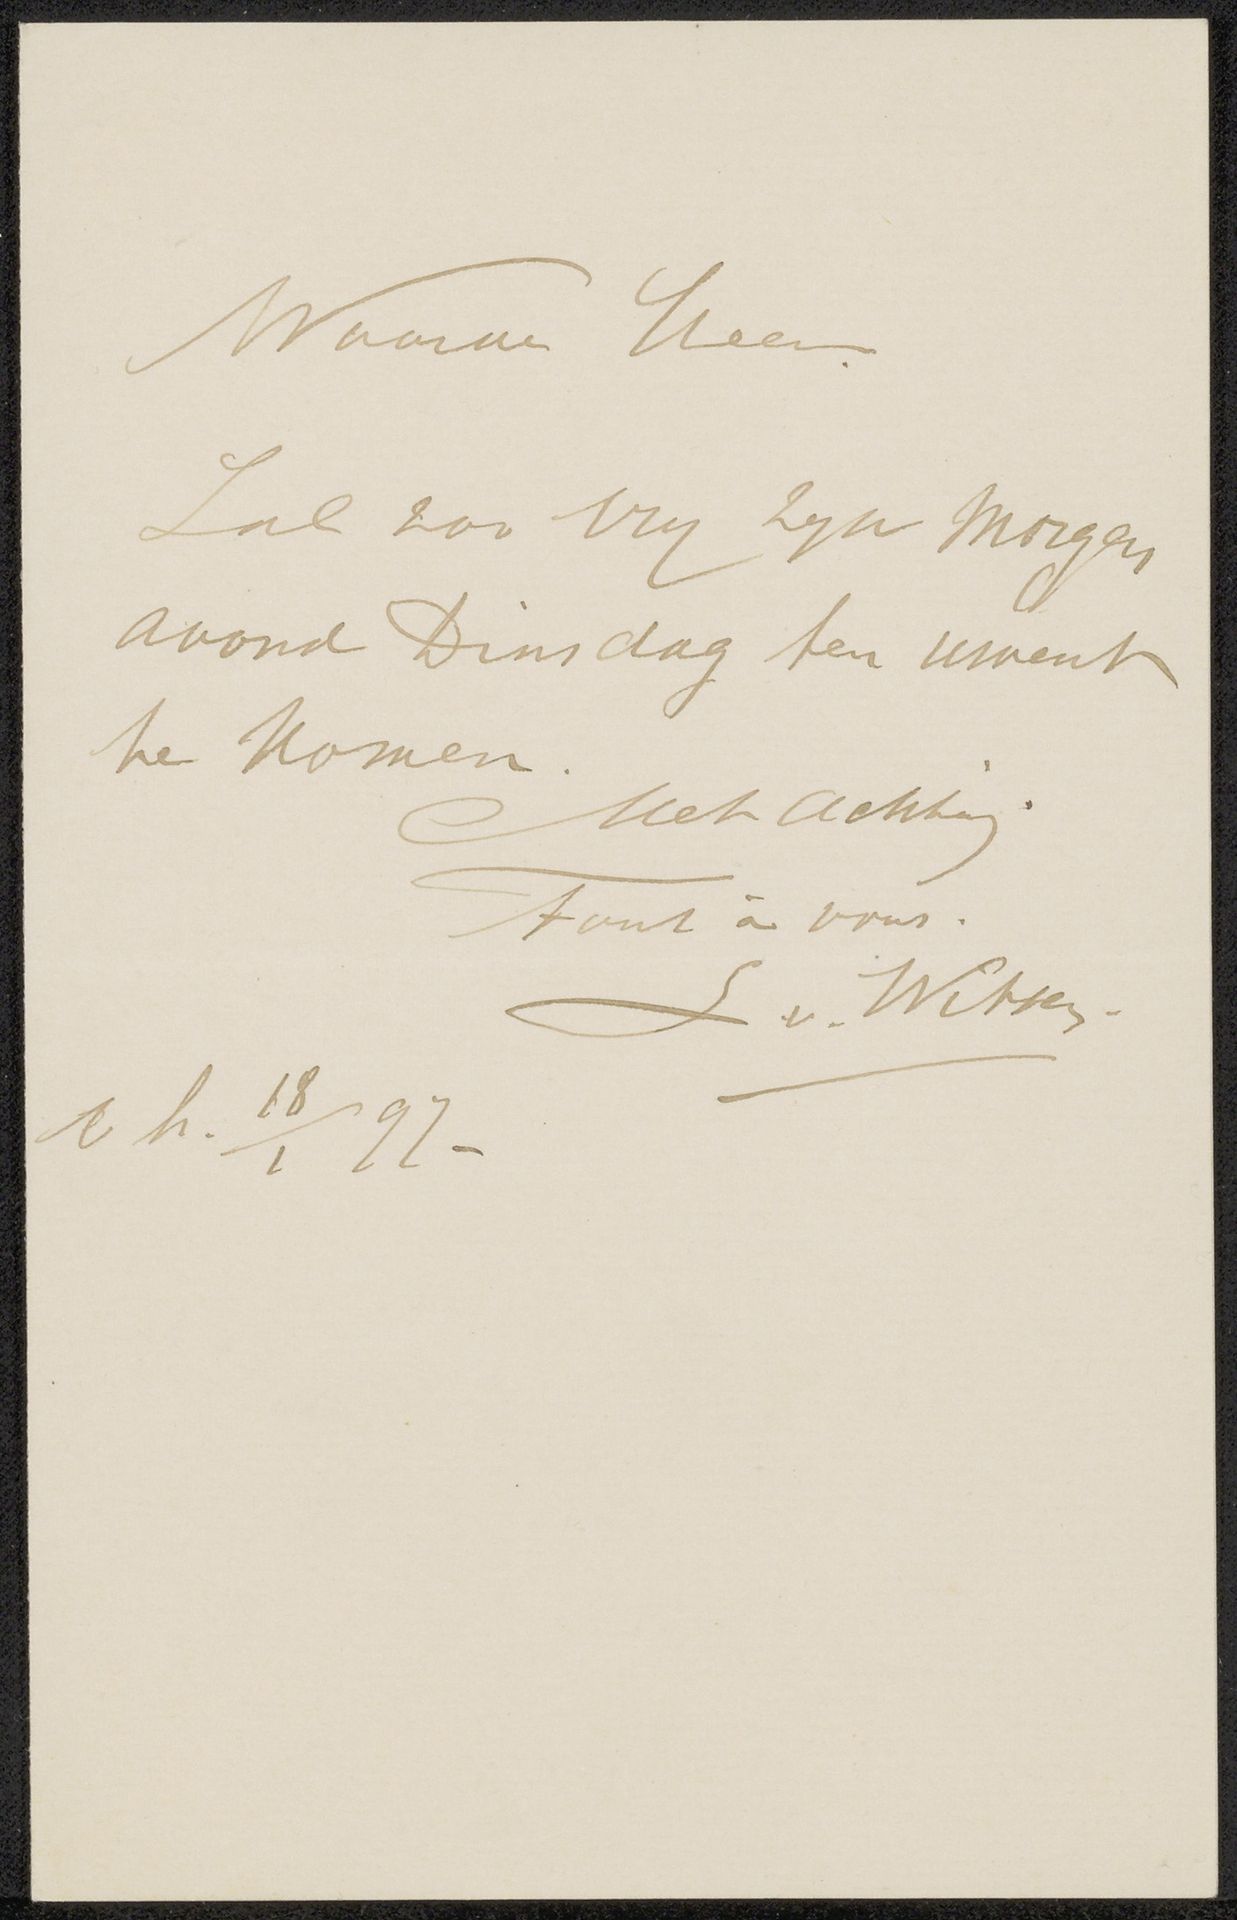 Waarde Heer.
Zal zoo vry zyn Morgen
avond Dinsdag ten uwent
te komen.
Met achting.
Tout à vous.
v. Witsen.
h. 18/1 97-